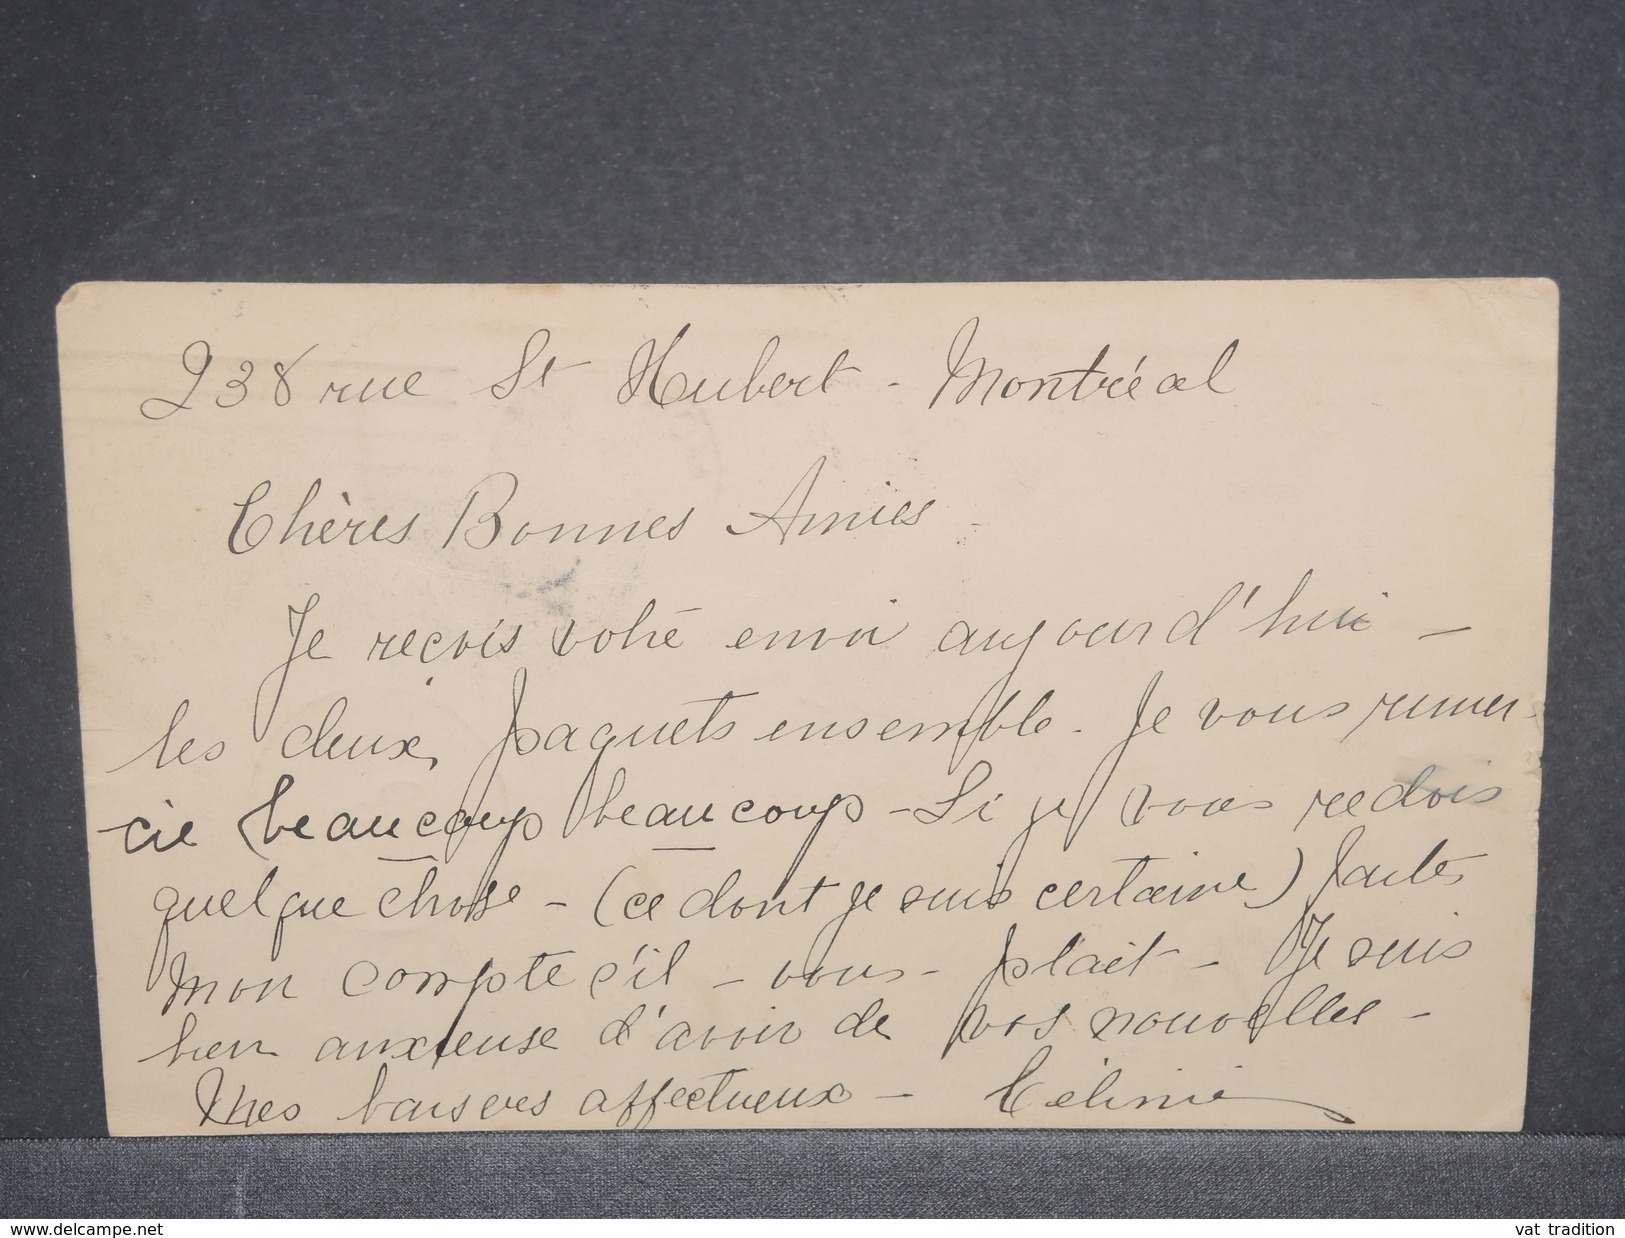 238 rue St Hubert - Montréal
Chères Bonnes Amies -
Je reçois votre envoi aujourd'hui -
les deux paquets ensemble. Je vous remer-
cie beaucoup beaucoup - Si je vous redois
quelque chose - (ce dont je suis certaine) faites
mon compte s'il - vous - plait - Je suis
bien anxieuse d'avoir de vos nouvelles -
Mes baisers affectueux - Célinie
www.delcampe.net
vat tradition